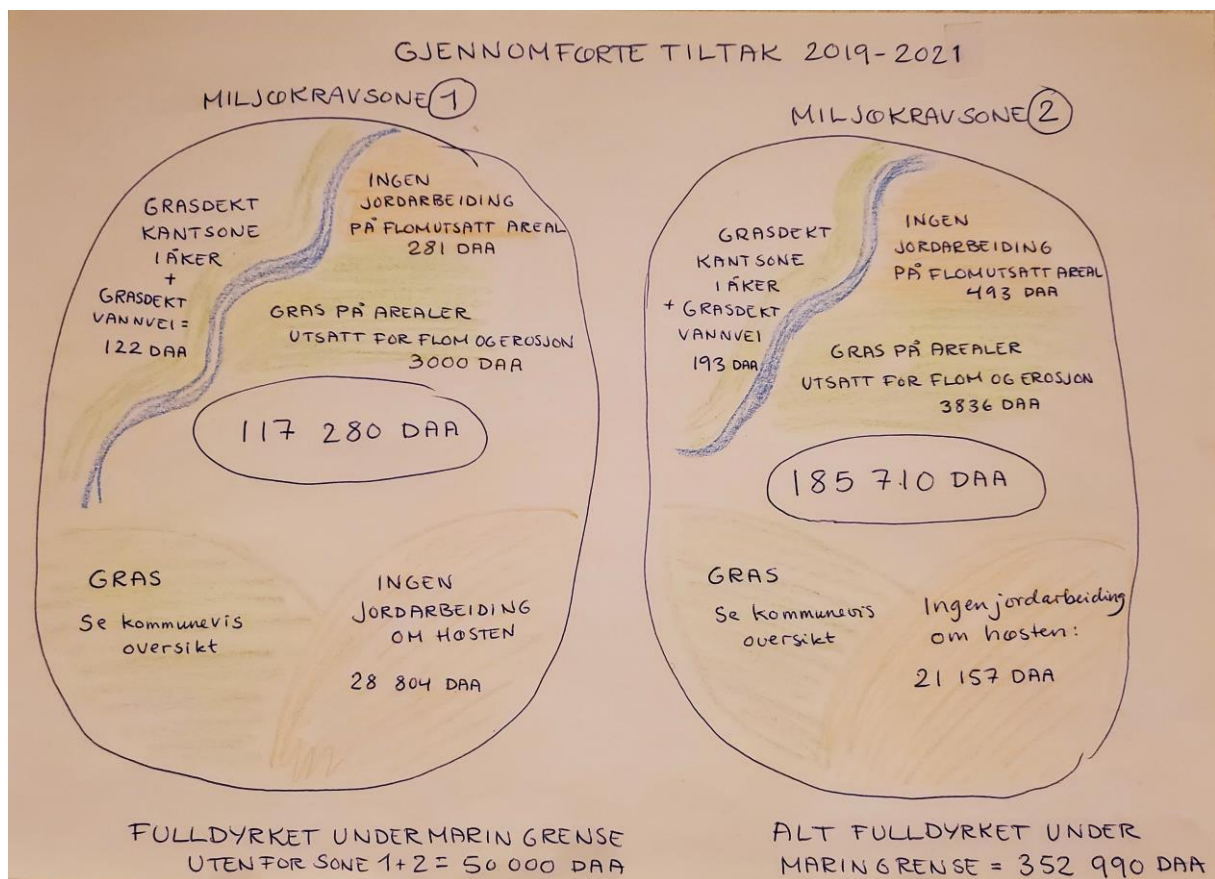 GJENNOMFØRTE TILTAK 2019-2021
MILJØKRAVSONE 1
GRASDEKT
KANTSONE
I ÅKER
+
GRASDEKT
VANNVEI =
122 DAA
INGEN
JORDARBEIDING
PÅ FLOMUTSATT AREAL
281 DAA
GRAS PÅ AREALER
UTSATT FOR FLOM OG EROSJON
3000 DAA
117 280 DAA
GRAS
Se kommunevis
oversikt
INGEN
JORDARBEIDING
OM HØSTEN
28 804 DAA
MILJØKRAVSONE 2
GRASDEKT
KANTSONE
I ÅKER
+ GRASDEKT
VANNVEI
193 DAA
INGEN
JORDARBEIDING
PÅ FLOMUTSATT AREAL
493 DAA
GRAS PÅ AREALER
UTSATT FOR FLOM OG EROSJON
3836 DAA
185 710 DAA
GRAS
Se kommunevis
oversikt
Ingen jordarbeiding
om høsten:
21 157 DAA
FULLDYRKET UNDER MARIN GRENSE
UTENFOR SONE 1+2 = 50 000 DAA
ALT FULLDYRKET UNDER
MARIN GRENSE = 352 990 DAA